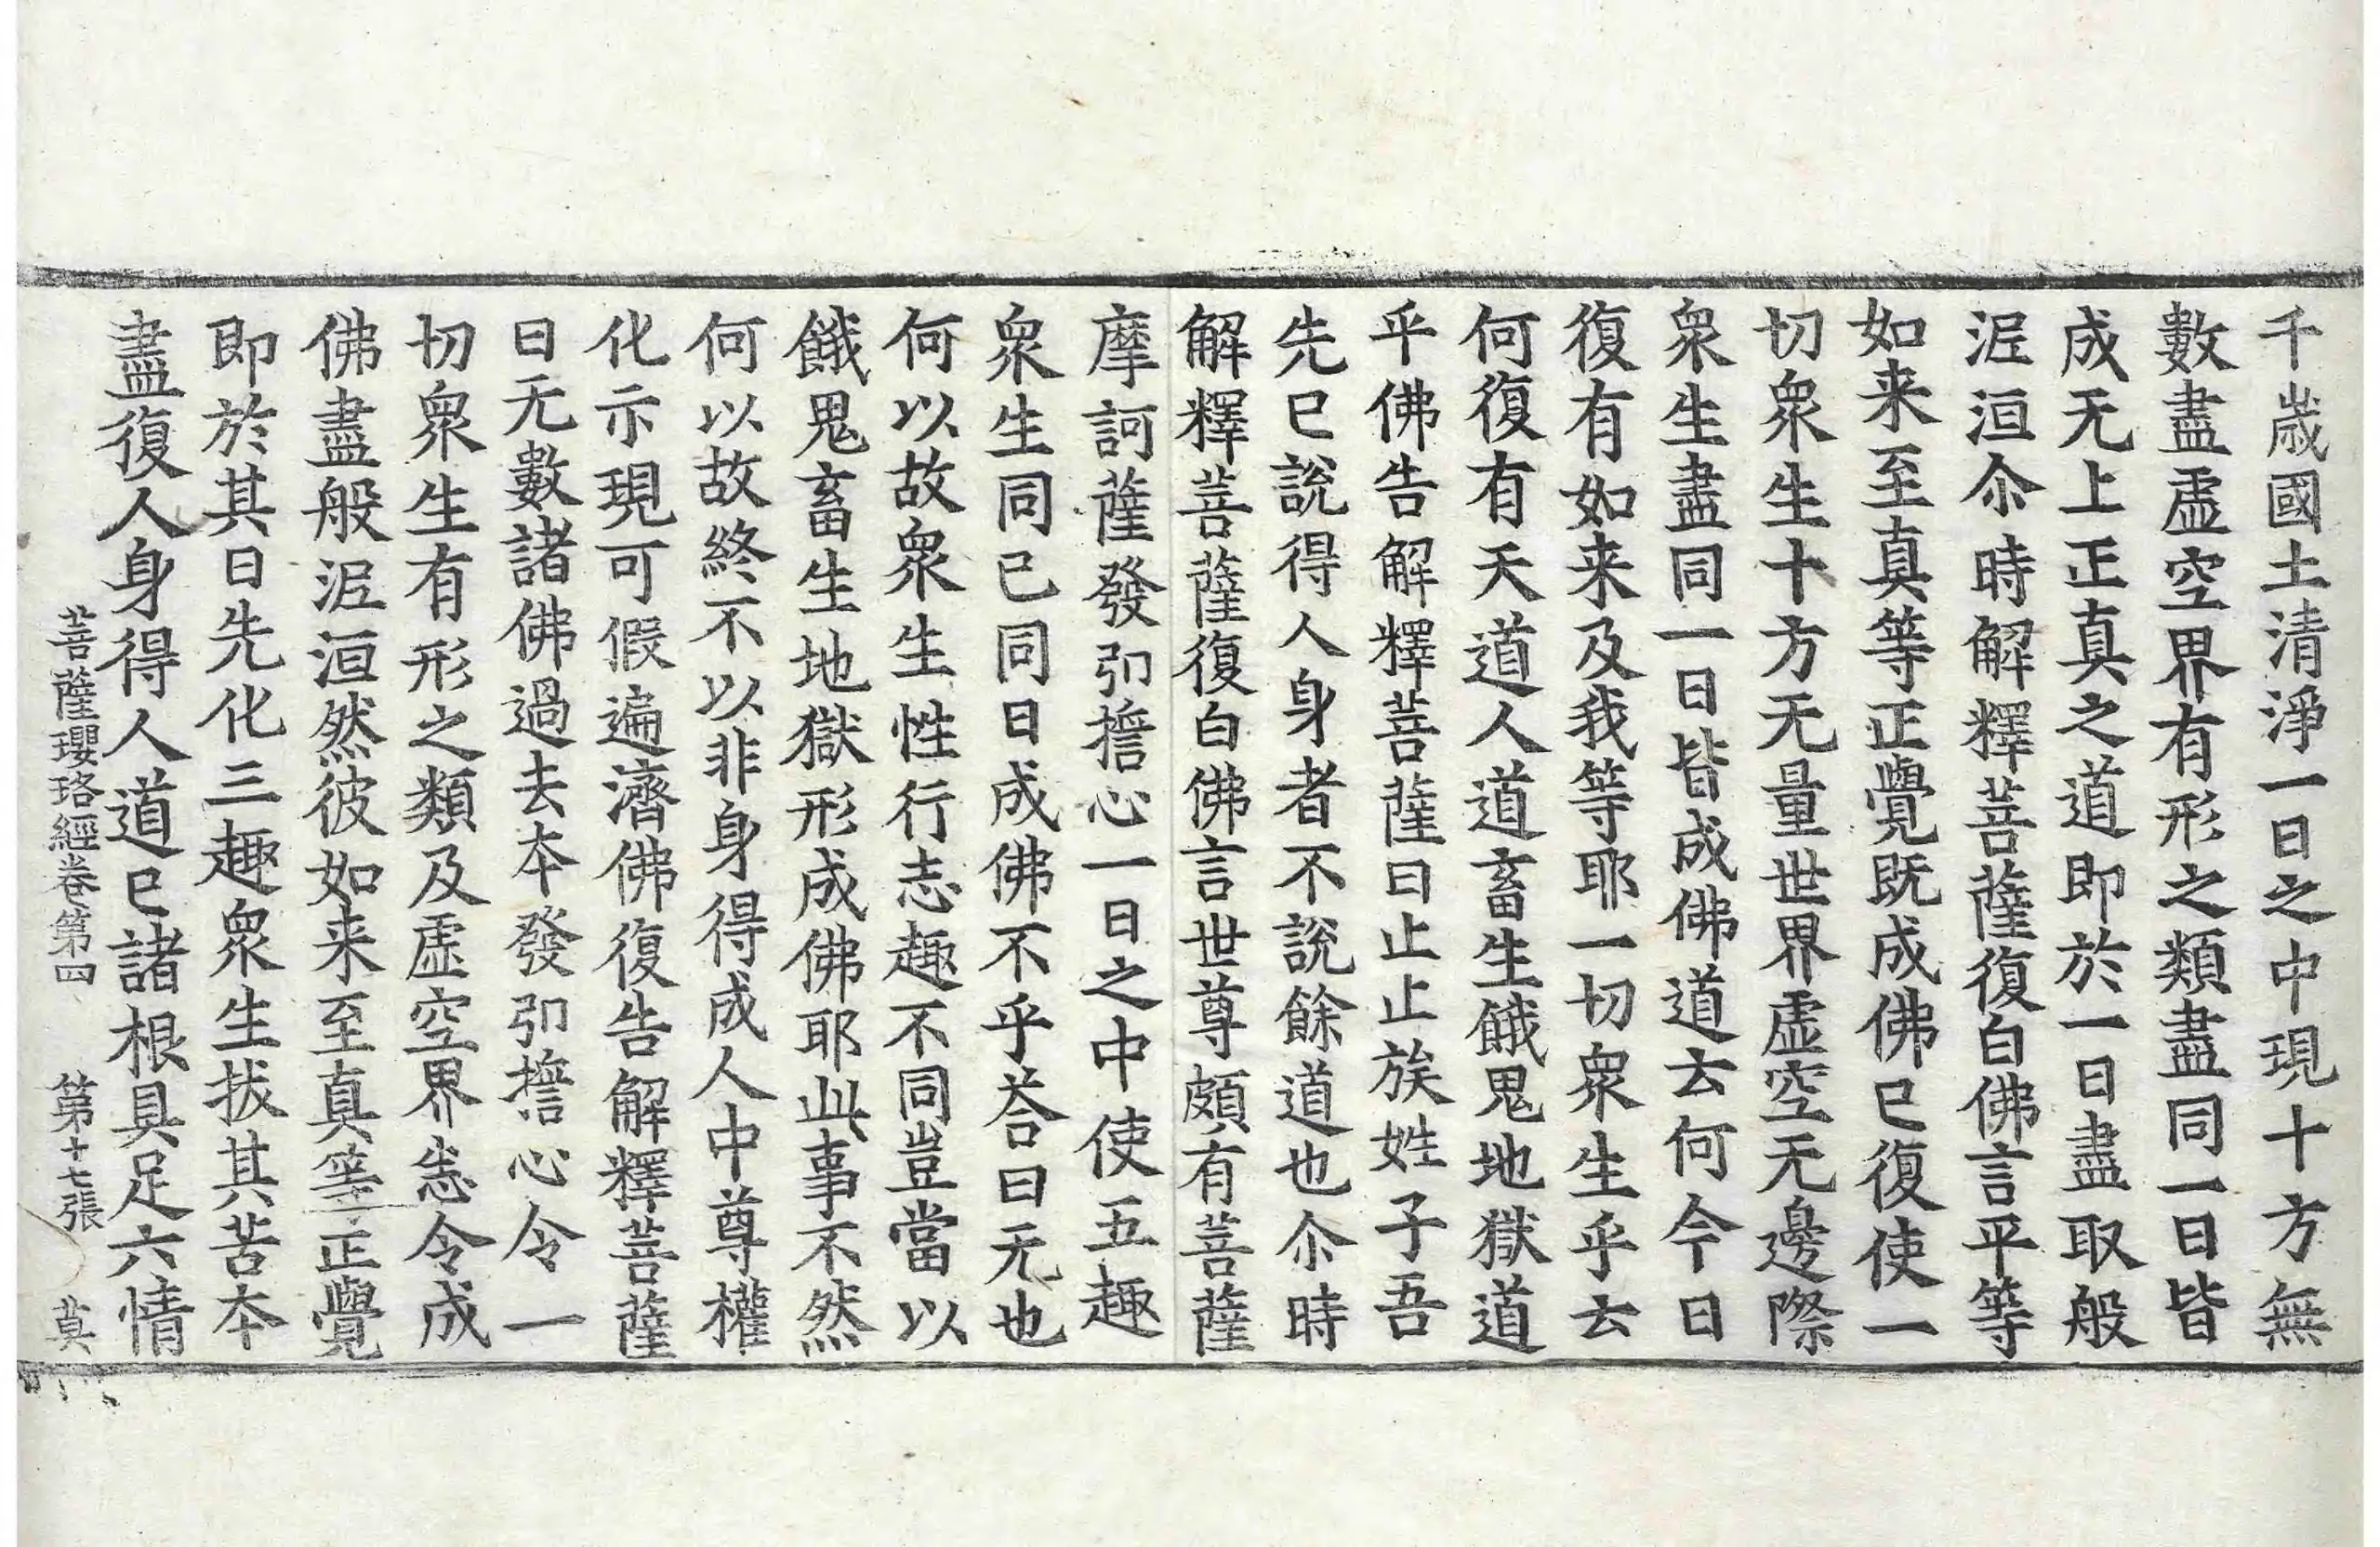 千歲國土清淨一日之中現十方無
數盡虛空界有形之類盡同一日皆
成无上正真之道即於一日盡取般
泥洹尒時解釋菩薩復白佛言平等
如来至真等正覺既成佛已復使一
切衆生十方无量世界虛空无邊際
衆生盡同一日皆成佛道云何今日
復有如来及我等耶一切衆生乎云
何復有天道人道畜生餓鬼地獄道
乎佛告解釋菩薩曰止止族姓子吾
先已說得人身者不說餘道也尒時
解釋菩薩復白佛言世尊頗有菩薩
摩訶薩發弘擔心一日之中使五趣
衆生同已同日成佛不乎荅曰无也
何以故衆生性行志趣不同豈當以
餓鬼畜生地獄形成佛耶此事不然
何以故終不以非身得成人中尊權
化示現可假遍濟佛復告解釋菩薩
日无數諸佛過去夲發弘擔心令一
切衆生有形之類及虛空界悉令成
佛盡般泥洹然彼如来至真等正覺
即於其日先化三趣衆生拔其苦夲
盡復人身得人道已諸根具足六情
菩薩瓔珞經卷第四 第十七張 莫